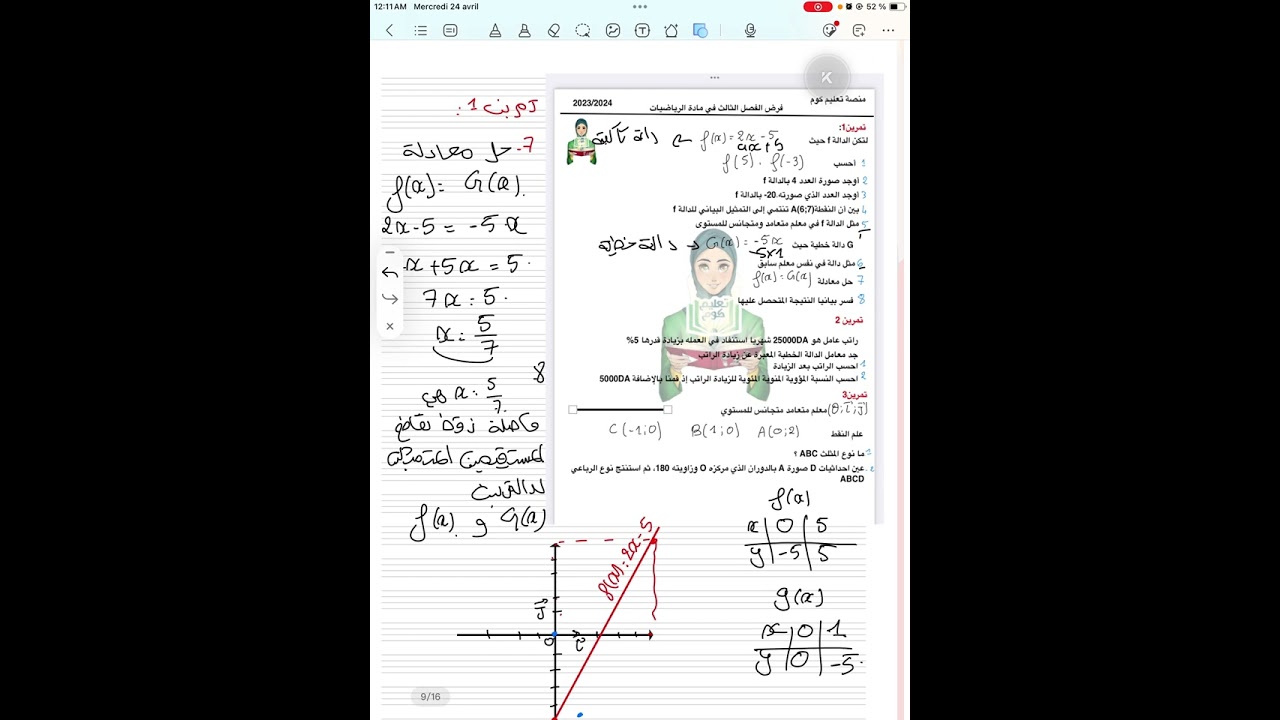 12:11AM Mercredi 24 avril
52 %
K
منصة تعليم كوم
فرض الفصل الثالث في مادة الرياضيات
2023/2024
تمرين1:
لتكن الدالة f حيث f(x) = 2x - 5 دالة تآلفية
ax + b
1 احسب f(5) . f(-3)
2 اوجد صورة العدد 4 بالدالة f
3 اوجد العدد الذي صورته 20- بالدالة f
4 بين أن النقطة A(6;7) تنتمي إلى التمثيل البياني للدالة f
5 مثل الدالة f في معلم متعامد ومتجانس للمستوى
G دالة خطية حيث G(x) = -5x دالة خطية
-5x1
6 مثل دالة في نفس معلم سابق
7 حل معادلة f(x) = G(x)
8 فسر بيانيا النتيجة المتحصل عليها
تعليم كوم
تمرين 2
راتب عامل هو 25000DA شهريا استفاد في العمله بزيادة قدرها 5%
جد معامل الدالة الخطية المعبرة عن زيادة الراتب
1 احسب الراتب بعد الزيادة
2 احسب النسبة المؤوية المنوية المئوية للزيادة الراتب إذ قمنا بالإضافة 5000DA
تمرين3
معلم متعامد متجانس للمستوي
علم النقط A(0;2) B(1;0) C(-1;0)
1 ما نوع المثلث ABC ؟
عين احداثيات D صورة A بالدوران الذي مركزه O وزاويته 180، ثم استنتج نوع الرباعي
ABCD
تمرين 1:
7- حل معادلة
f(x) = G(x).
2x - 5 = -5x
x + 5x = 5.
7x = 5.
x = 5/7
8-
x = 5/7
فاصلة نقطة تقاطع
المستقيمين الممثلين
للدالتين
G(x) و f(x).
f(x) = 2x - 5
J
O
f(x)
x 0 5
y -5 5
g(x)
x 0 1
y 0 -5.
9/16